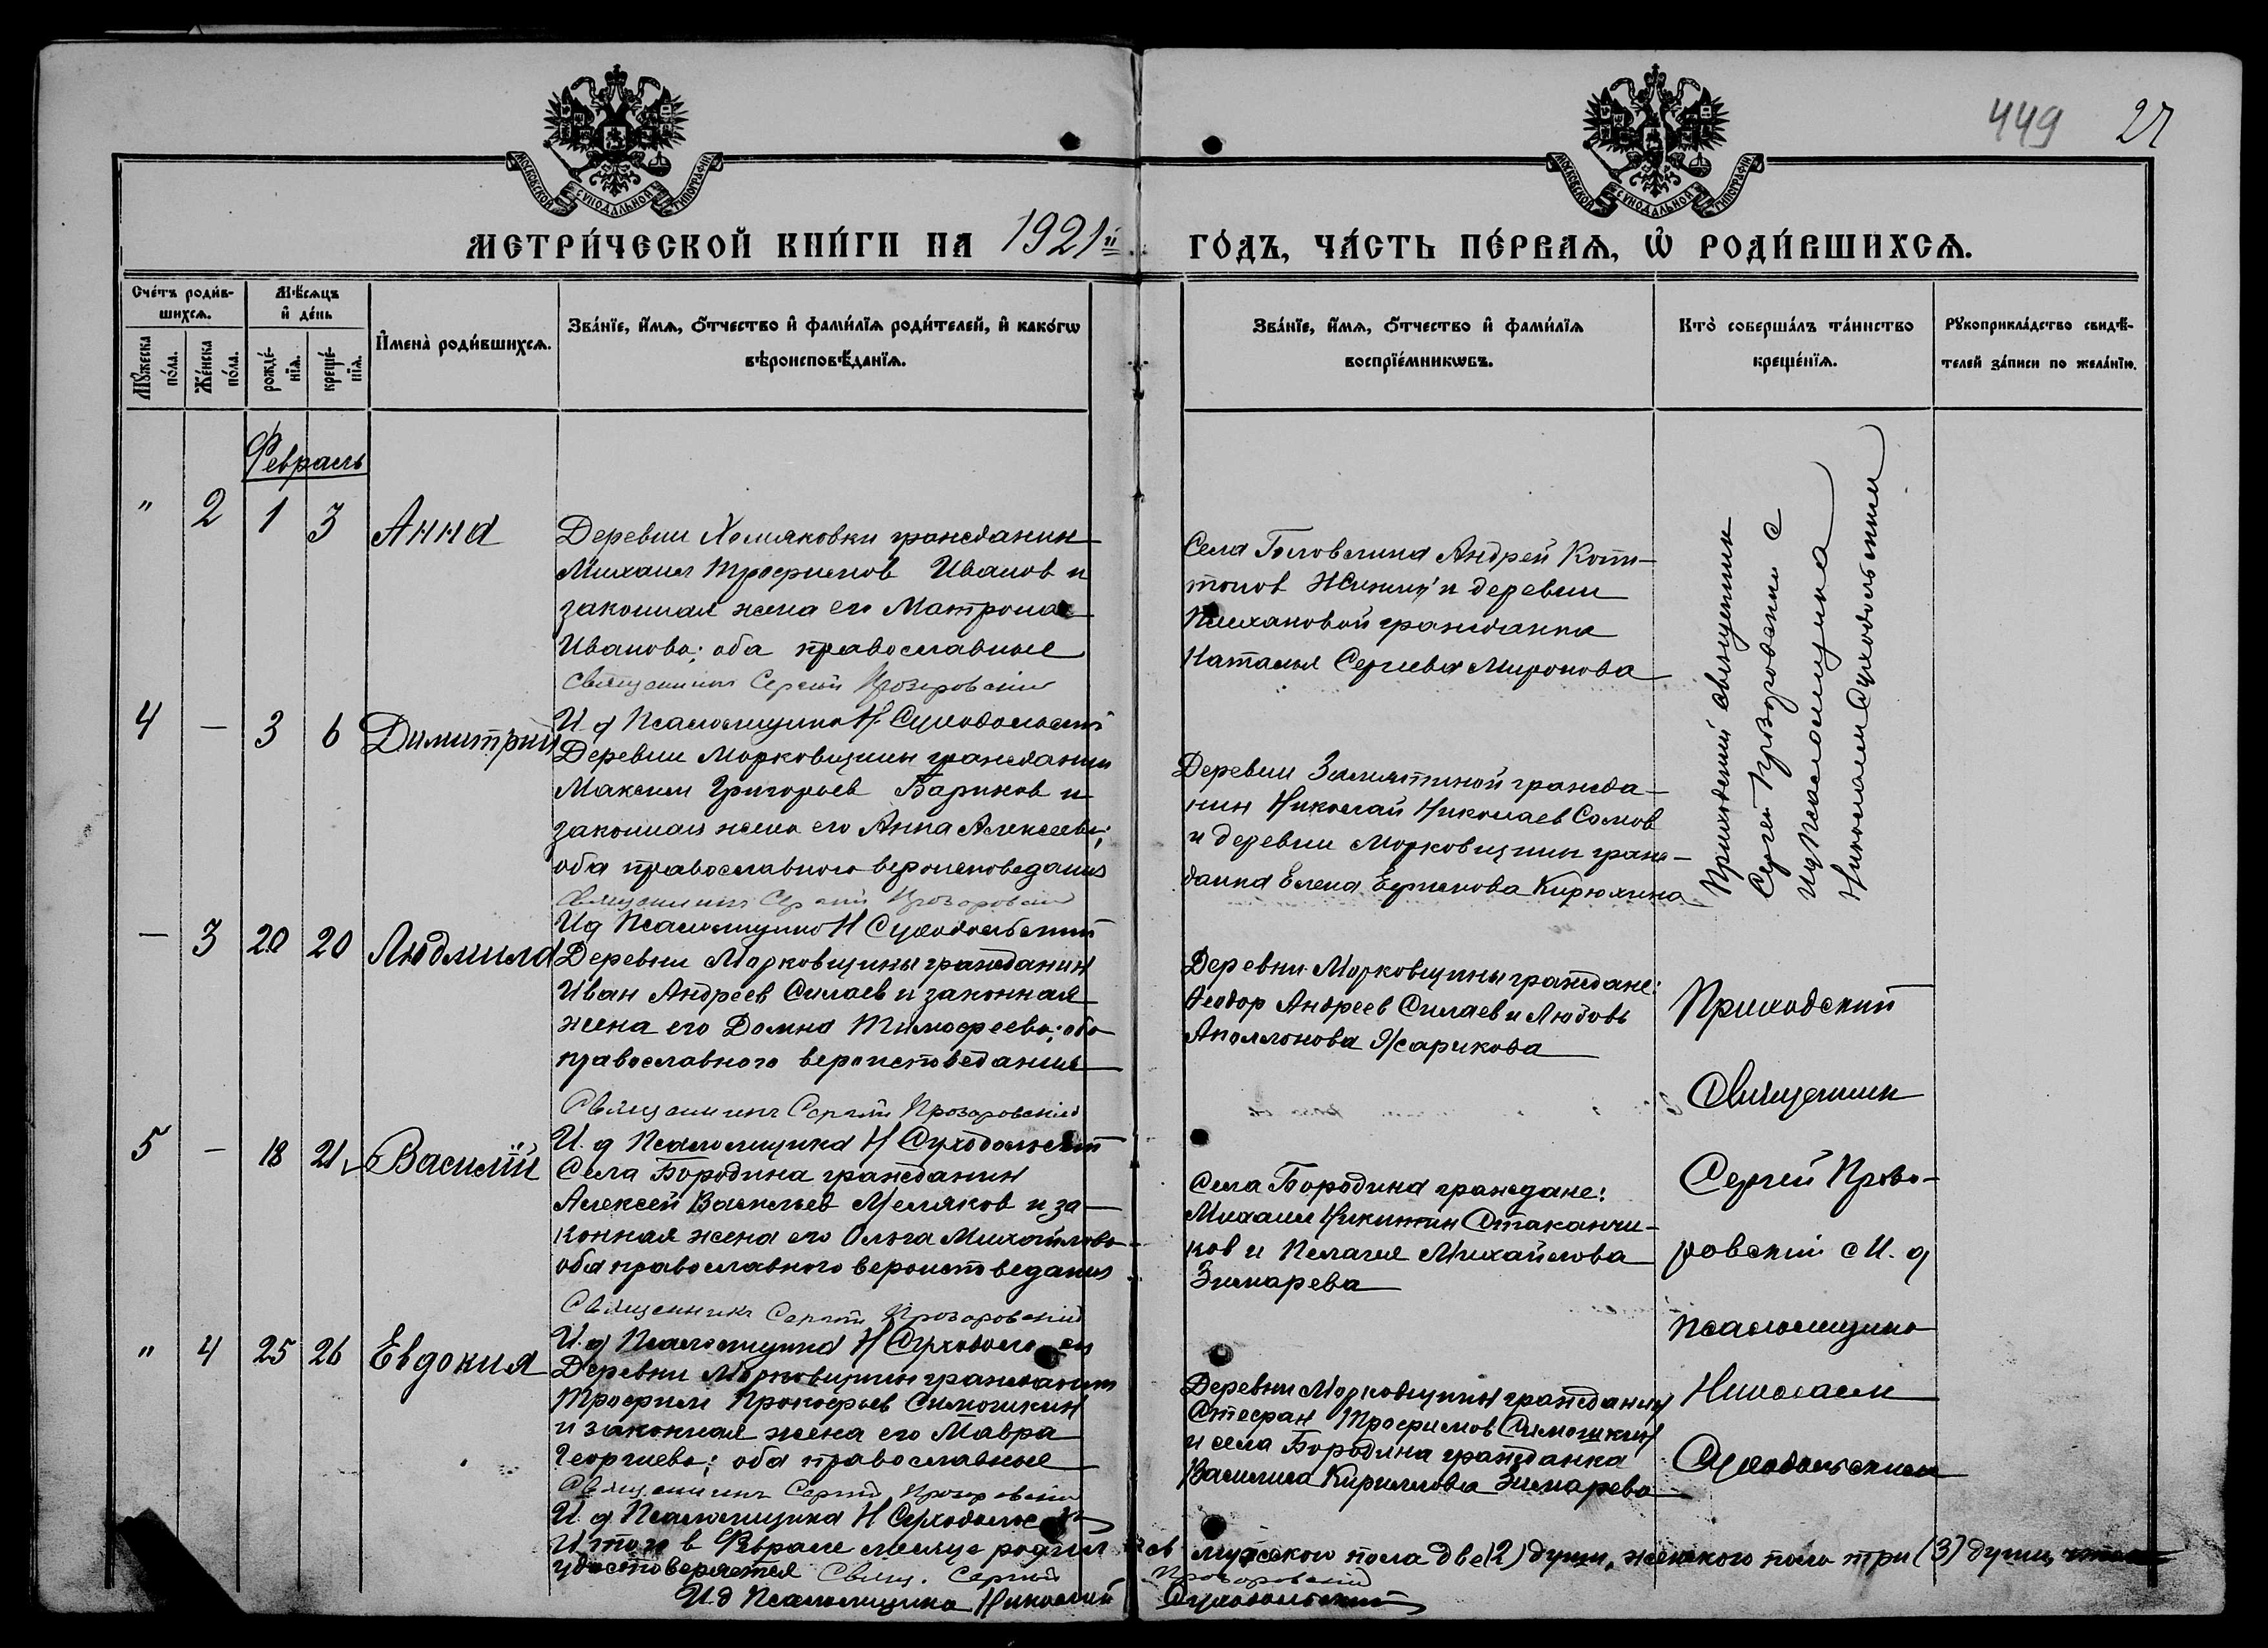 449 27
МОСКОВСКОЙ СѴНОДАЛЬНОЙ ТИПОГРАФІИ
МОСКОВСКОЙ СѴНОДАЛЬНОЙ ТИПОГРАФІИ
МЕТРИ́ЧЕСКОЙ КНИ́ГИ НА 1921й ГО́ДЪ, ЧА́СТЬ ПЕ́РВАѦ, Ѡ҆ РОДИ́ВШИХСѦ.
Сче́тъ роди́в-
шихсѧ.
Мꙋ́жеска
по́ла.
Же́нска
по́ла.
Мѣ́сѧцъ
и҆ де́нь
рожде́-
нїѧ.
креще́-
нїѧ.
И҆мена̀ роди́вшихсѧ.
Зва́нїе, и҆́мѧ, ѻ҆́тчество и҆ фами́лїѧ роди́телей, и҆ како́гѡ
вѣроисповѣ́данїѧ.
Зва́нїе, и҆́мѧ, ѻ҆́тчество и҆ фами́лїѧ
воспрїе́мникѡвъ.
Кто̀ соверша́лъ та́инство
креще́нїѧ.
Рꙋкоприкла́дство свидѣ́-
телей за́писи по жела́нїю.
Февраль
" 2 1 3 Анна
Деревни Хомяковки гражданин
Михаил Трофимов Иванов и
законная жена его Матрона
Иванова; оба православные
Священник Сергий Прозоровский
И д Псаломщика Н. Суходольский
Села Головлина Андрей
и деревни
гражданка
Наталья Сергиева Миронова
Приходский священник
Сергей Прозоровский с
ид Псаломщика
Николаем Суходольским
4 — 3 6 Димитрий
Деревни Морковщины гражданин
Максим Григорьев Баринов и
законная жена его Анна Алексеева;
оба православного вероисповедания
Священник Сергий Прозоровский
Ид Псаломщика Н Суходольский
Деревни Замятиной гражда-
нин Николай Николаев Сомов
и деревни Морковщины граж-
данка Елена Кирюхина
— 3 20 20 Людмила
Деревни Морковщины гражданин
Иван Андреев Силаев и законная
жена его Домна Тимофеева; оба
православного вероисповедания
Священник Сергий Прозоровский
И. д Псаломщика Н Суходольский
Деревни Морковщины граждане:
Феодор Андреев Силаев и Любовь
Аполлонова Жарикова
Приходский
Священник
Сергей Прозо-
ровский с И. д
псаломщика
Николаем
Суходольским
5 — 18 21 Василий
Села Бородина гражданин
Алексей Васильев и за-
конная жена его Ольга Михайлова
оба православного вероисповедания
Священник Сергий Прозоровский
И. д Псаломщика Н Суходольский
Села Бородина граждане:
Михаил Никитин Стаканчи-
ков и Пелагея Михайлова
Зимарева
" 4 25 26 Евдокия
Деревни Морковщины гражданин
Трофим Прокофьев Симошкин
и законная жена его Мавра
Георгиева; оба православные
Священник Сергий Прозоровский
И. д Псаломщика Н Суходольск
Деревни Морковщины гражданин
Стефан Трофимов Симошкин
и села Бородина гражданка
Василиса Кириллова Зимарева
Итого в Феврале месяце родил ся мужского пола две (2) души, женского пола три (3) души, что
удостоверяется Свящ. Сергий Прозоровский
И.д Псаломщика Николай Суходольский